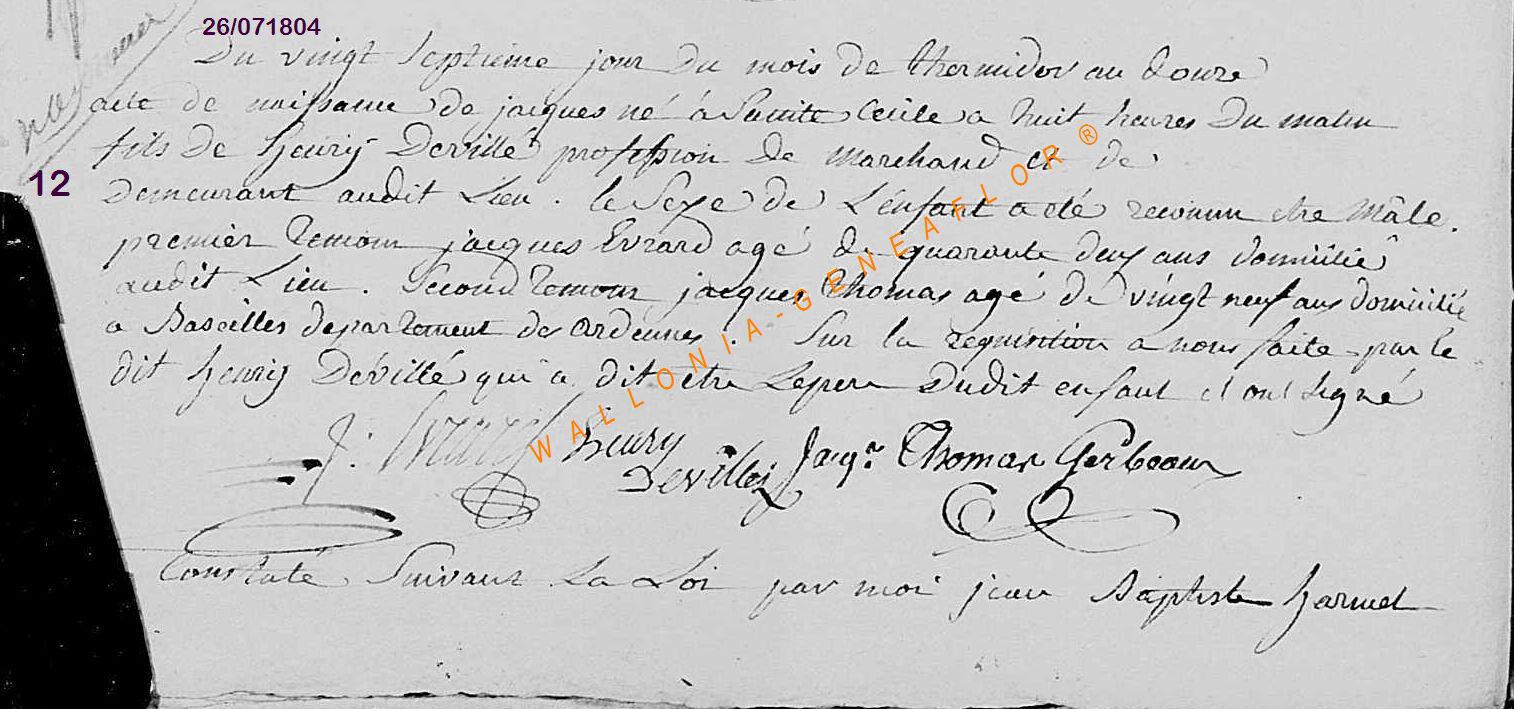 26/071804
Du vingt Septieme jour du mois de thermidor an douze
acte de naissance de jacques né à Sainte Cecile a huit heures du matin
fils de henrÿ Devillé profession de Marchand et de
12
demeurant audit Lieu . le Sexe de L'enfant a été reconnu etre Mâle .
premier temoin jacques Evrard agé de quarante deux ans domicilié
audit Lieu . Second temoin jacques thomas agé de vingt neuf ans domicilié
a Baseilles departement des ardennes . Sur la requisition a nous faite par le
dit henrÿ Dévillé qui a dit etre Le pere Dudit enfant et ont signé
J. Evrard henry Devillez Jacq. Thomas Gerbeaux
Constaté Suivant La Loi par moi jean Baptiste harmel
WALLONIA-GENEAFLOR®